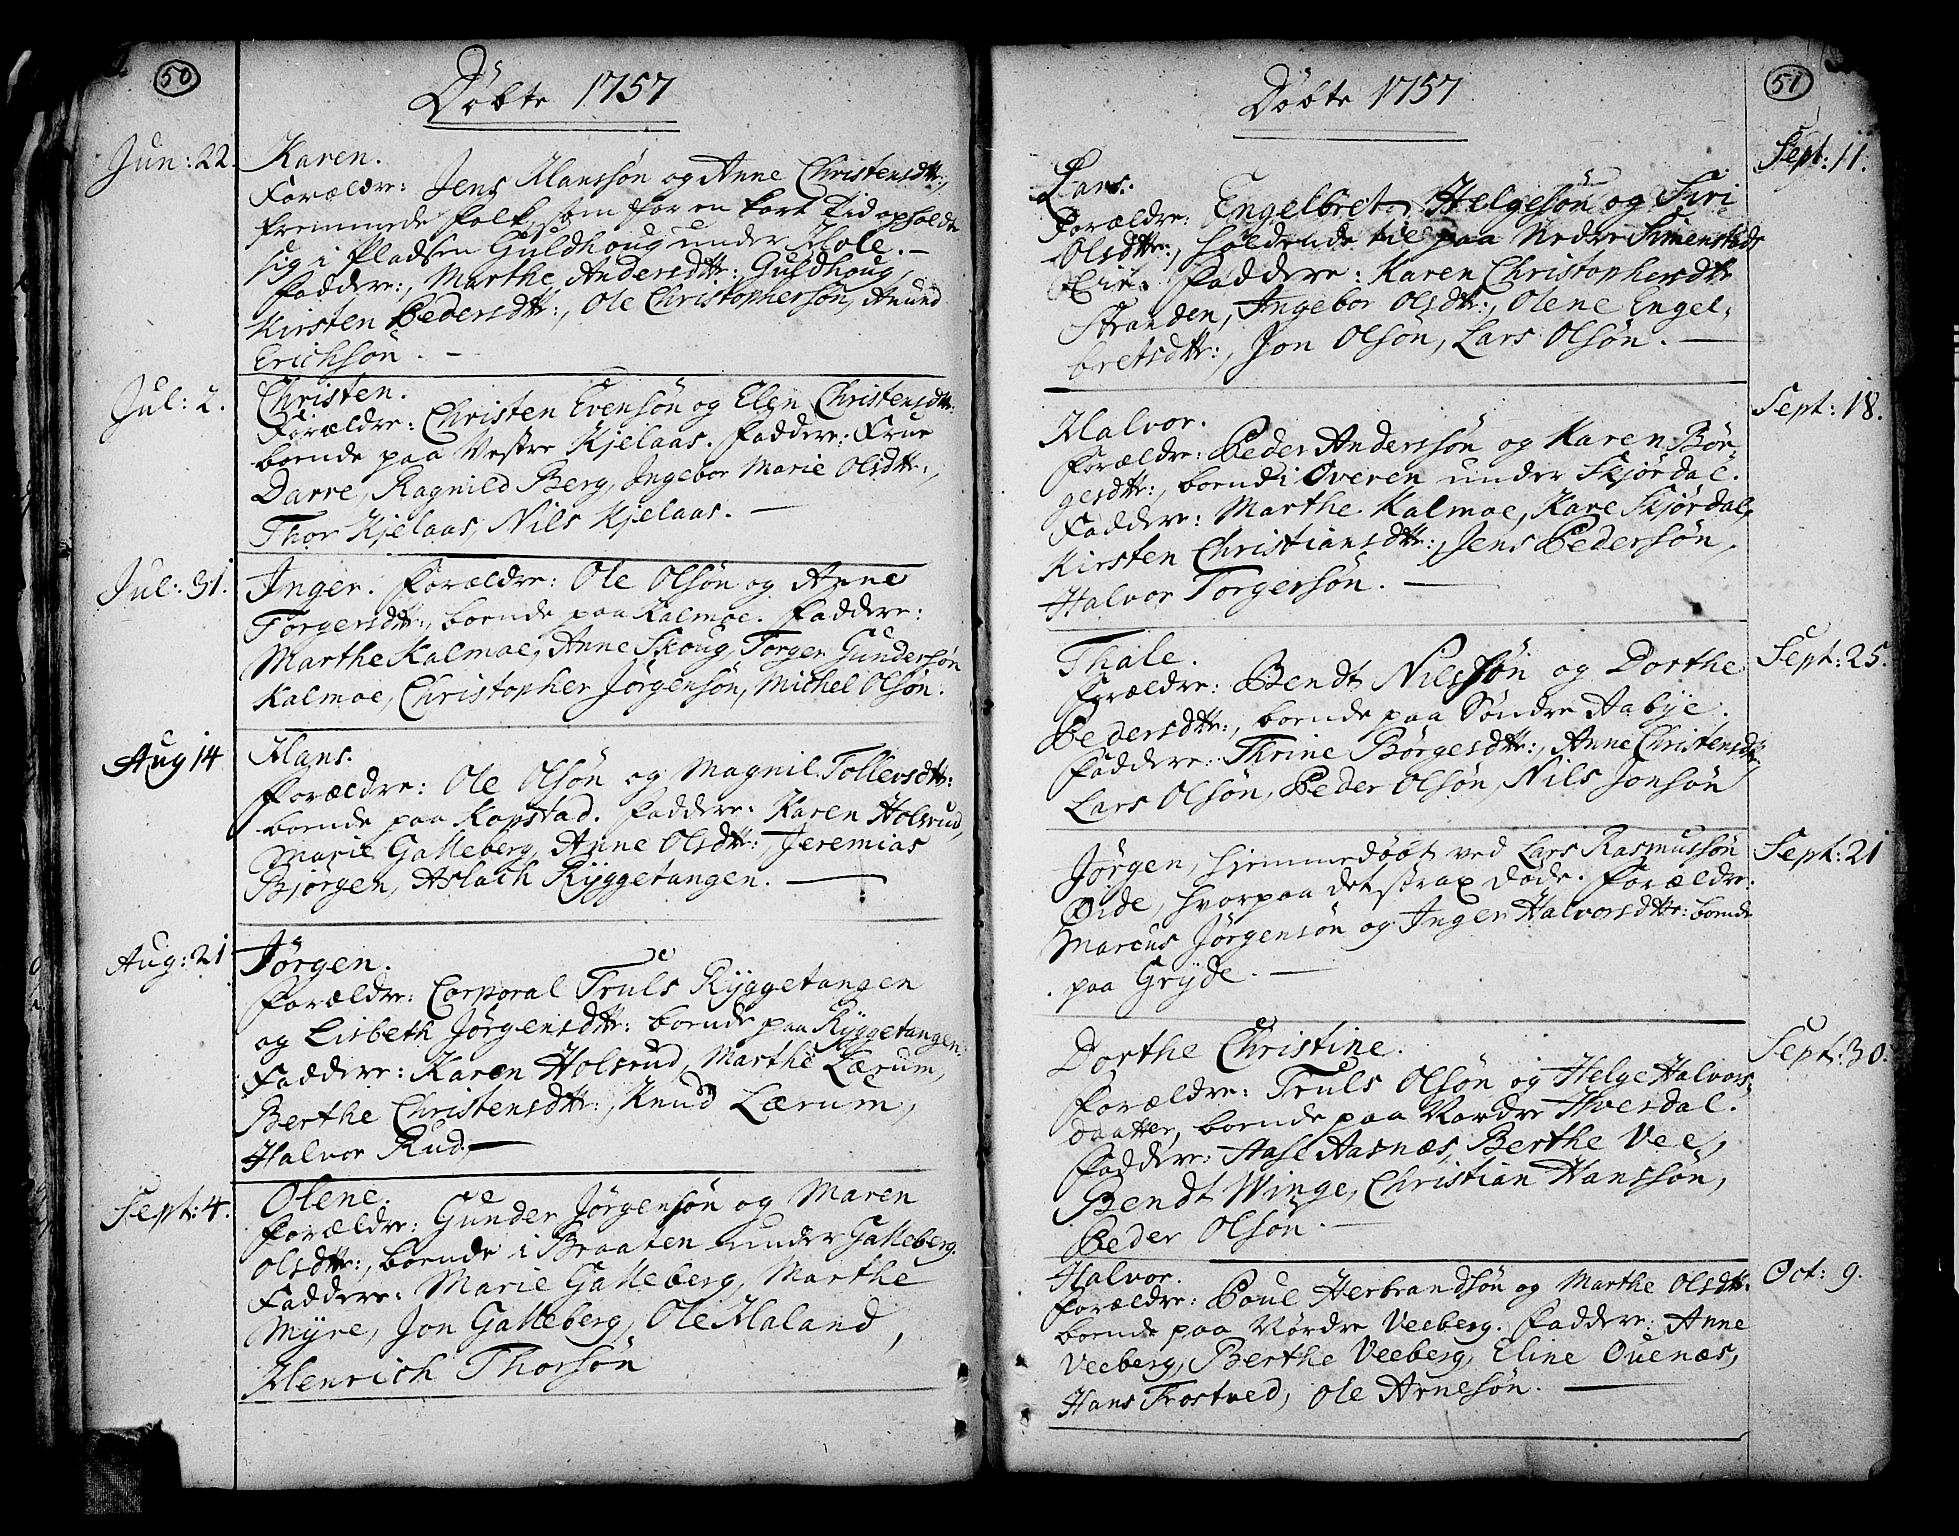 50
Döbte 1757
Jun: 22.
Karen.
Forældre: Jens Hanssön og Anne Christensdttr:,
fremmede folk, som for en kort Tid opholdt
sig i Pladsen Guldhoug under Hole. –
Faddere:, Marthe Andersdttr: Guldhoug,
Kirsten Pedersdttr:, Ole Christophersön, Anund
Erichsön. –
Jul: 2.
Christen.
Forældre: Christen Evensön og Elen Christensdttr:
boende paa Vestre Kjelaas. Faddere: Frue
Darre, Ragnild Berg, Ingebor Marie Olsdttr:,
Thor Kjelaas, Nils Kjelaas. –
Jul: 31.
Inger. Forældre: Ole Olsön og Anne
Torgersdttr:, boende paa Kalmoe. Faddere:
Marthe Kalmoe, Anne Skoug, Torger Gundersön
Kalmoe, Christopher Jörgensön, Michel Olsön.
Aug 14
Hans.
Forældre: Ole Olsön og Magnil Tollevsdttr:
boende paa Kopstad. Faddere: Karen Holsrud,
Marie Galleberg, Anne Olsdttr:, Jeremias
Bjørgen, Aslach Ryggetangen. –
Aug: 21
Jörgen.
Forældre: Corporal Truls Ryggetangen
og Lisbeth Jörgensdttr: boende paa Ryggetangen.
Faddere: Karen Holsrud, Marthe Lærum,
Berthe Christensdttr:, Knud Lærum,
Halvor Rud. –
Sept: 4.
Olene.
Forældre: Gunder Jörgensön og Maren
Olsdttr:, boende i Braaten under Galleberg.
Faddere: Marie Galleberg, Marthe
Myre, Jon Galleberg, Ole Haland,
Henrich Thorsön
51
Döbte 1757
Sept: 11.
Lars.
Forældre: Engelbret Helgesön og Siri
Olsdttr:, holdende til paa Nedre Simenstads
Eie. Faddere: Karen Christophersdttr
Stranden, Ingebor Olsdttr:, Olene Engel,
bretsdttr:, Jon Olsön, Lars Olsön. –
Sept: 18.
Halvor.
Forældre: Peder Anderssön og Karen Bör-
gesdttr:, boende i Överen under Skjördal.
Faddere: Marthe Kalmoe, Kare Skjördal,
Kirsten Christiansdttr:, Jens Pedersön,
Halvor Torgersön. –
Sept: 25.
Thale.
Forældre: Bendt Nilssön og Dorthe
Pedersdttr:, boende paa Söndre Aabye.
Faddere: Thrine Börgesdttr:, Anne Christensdttr,
Lars Olsön, Peder Olsön, Nils Jonsön
Sept: 21
Jörgen, hjemmedöbt ved Lars Rasmussön
Øide, hvorpaa det strax döde. Forældre:
Marcus Jörgensön og Inger Halvorsdttr: boende
paa Gryde. –
Sept: 30.
Dorthe Christine.
Forældre: Truls Olsön og Helge Halvors,
daatter, boende paa Nordre Hvesdal.
Faddere: Aase Aasnæs, Berthe Vee,
Bendt Winge, Christian Hanssön,
Peder Olsön. –
Oct: 9.
Halvor.
Forældre: Poul Herbrandsön og Marthe Olsdttr:
boende paa Nordre Veeberg. Faddere: Anne
Veeberg, Berthe Veeberg, Eline Ouenæs,
Hans Trostved, Ole Arnesön. –